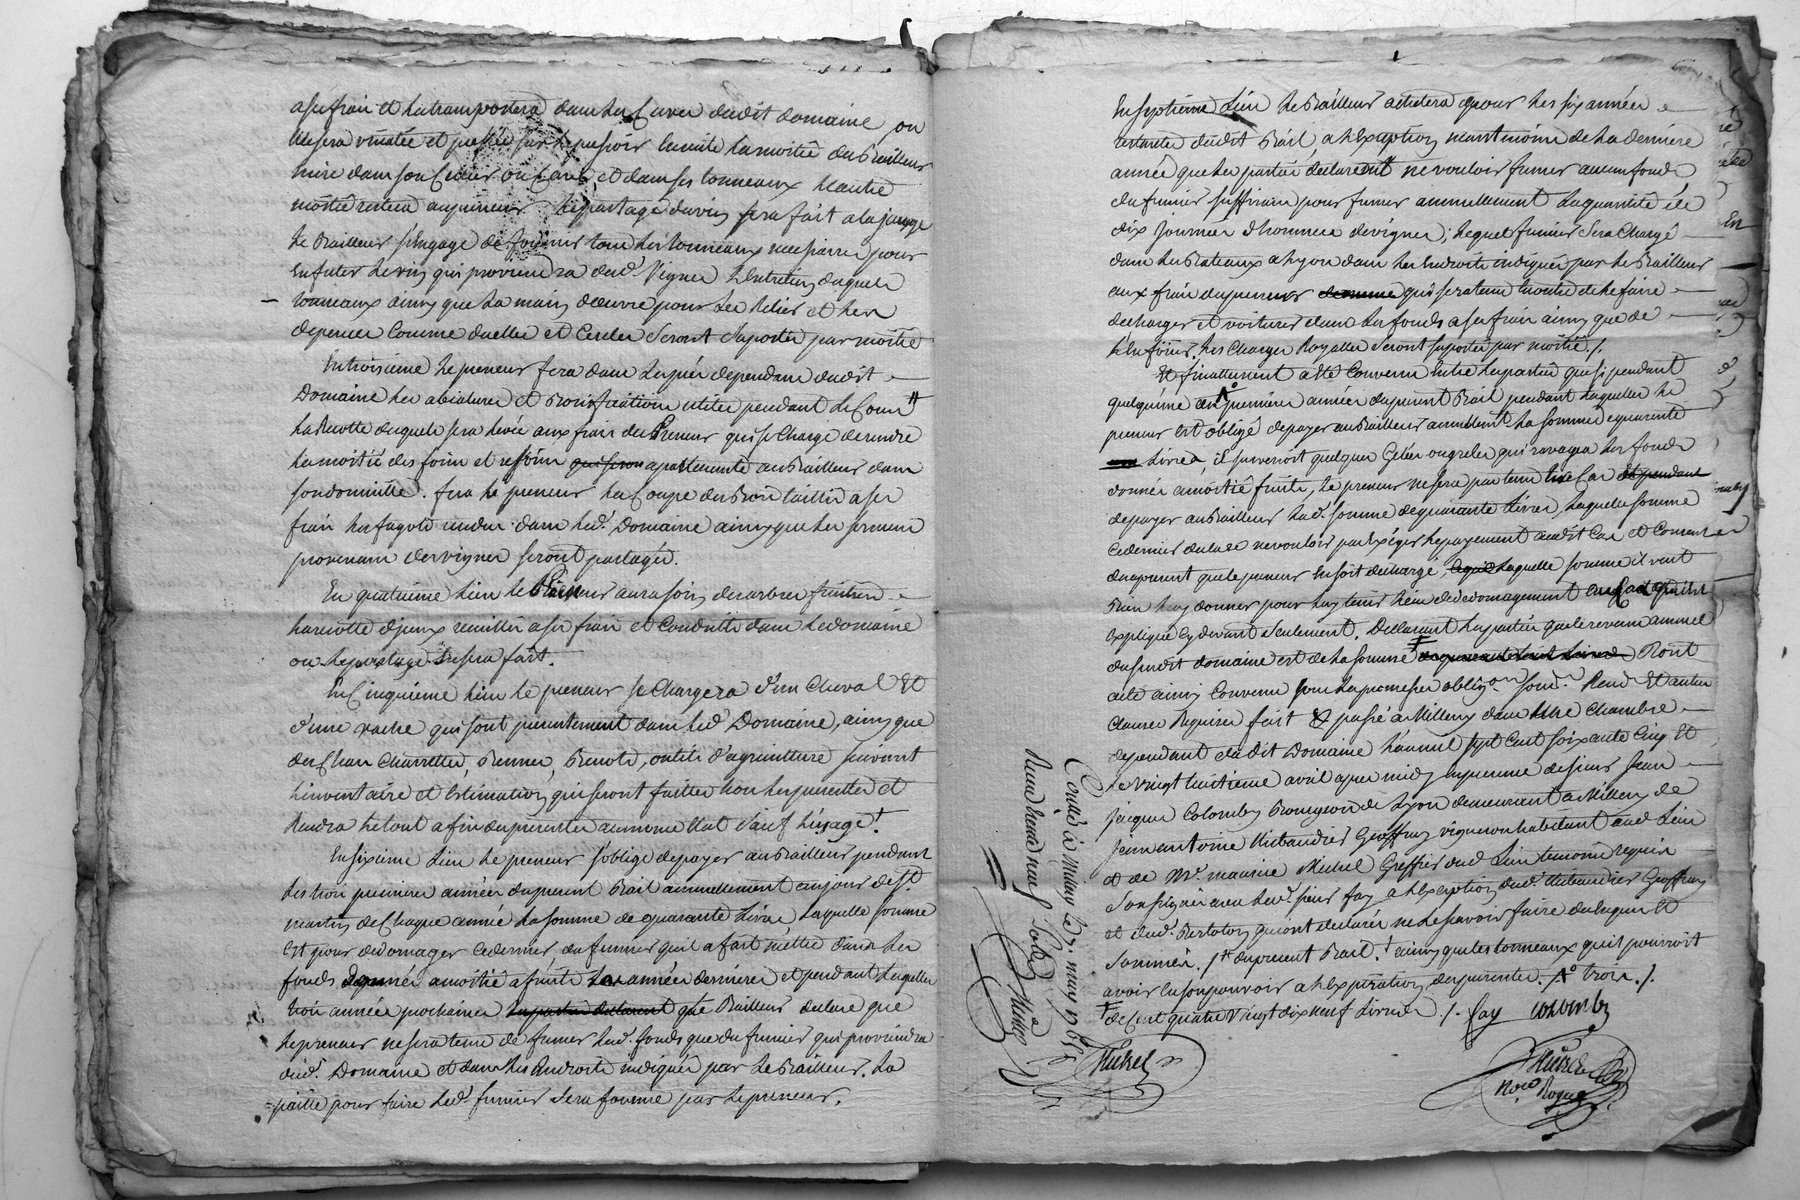 a ses frais et la transportera dans les Caves dudit domaine ou
elle sera vuidée et pressée sur le pressoir ensuite la moitié du Bailleur
mise dans son Cellier ou Cave et dans ses tonneaux l'autre
moitié restera au preneur le partage du vin sera fait a la jauge
le Bailleur s'Engage de fournir tous les tonneaux necessaires pour
Enfuter le vin qui proviendra desd. Vignes l'Entretien desquels
tonneaux ainsy que la main d'œuvre pour les Relier et les
depences Comme duelles et Cercles Seront Suportés par moitié
En troisieme le preneur fera dans les prés dependans dudit
Domaine les abiatures et Bonification utiles pendant le Cours
la Recolte desquels sera levée aux frais du Preneur qui se Charge de rendre
la moitié des foins et refoins apartenante au Bailleur dans
son domicille. fera le preneur la Coupe des Bois taillis a ses
frais les fagots rendus dans led. Domaine ainsy que les sermens
provenans des vignes seront partagés.
En quatrieme Lieu le Preneur aura soin des arbres fruitiers
la recolte d'jceux recuillir a ses frais et Conduitte dans le domaine
ou le partage Sera fait.
En Cinquieme Lieu le preneur se Chargera d'un Cheval Et
d'une vache qui sont presentement dans led. Domaine, ainsy que
des Chars Charrettes, Bennes, Benots, outils d'agriculture suivant
l'inventaire et Estimation qui seront faittes Entre les parties et
Rendra le tout a fin des presentes au meme Etat sauf l'usage †
En sixieme Lieu le preneur s'oblige de payer au Bailleur pendant
les trois premieres années du present Bail annuellement au jour de St.
martin de Chaque année la somme de quarante Livres Laquelle somme
Est pour dedomager Ce dernier, du fumier qu'il a fait mettre dans les
fonds donnés a moitié a fruits Les années dernieres et pendant lesquelles
trois années prochaines les parties declarent que Bailleur declare que
le preneur ne sera tenu de fumer lesd. fonds que du fumier qui proviendra
dud. Domaine et dans les Endroits indiqués par le Bailleur. La
paille pour faire led. fumier sera fournie par le preneur.
En septieme Lieu le Bailleur achetera pour les six années
restantes dudit Bail a l'Exception neantmoins de la derniere
année que les parties declarent ne vouloir fumer aucun fonds
du fumier suffisant pour fumer annuellement la quantité de
dix journées d'hommes de vignes; lequel fumier Sera Chargé
dans les Bateaux a Lyon dans les Endroits indiqués par le Bailleur
aux frais du preneur comme qui sera tenu Ensuite de le faire
decharger et voiturer dans les fonds a ses frais ainsy que de
l'Enfouir. les Charges Royalles Seront suportés par moitié /.
Et finallement a Eté Convenu entre les parties que si pendant
quelqu'une des premieres années du present Bail pendant lesquelles le
preneur Est obligé de payer au Bailleur annuellement la somme de quarante
Livres, il survenoit quelques Gelées ou greles qui ravagea les fonds
donnés a moitié fruits, le preneur ne sera pas tenu aud. Cas et pendant
de payer au Bailleur lad. somme de quarante Livres, laquelle somme
Ce dernier declare ne vouloir pas Exiger le payement audit Cas et Consent
du a present que le preneur En soit dechargé, laquelle somme il veut
Bien luy donner pour luy tenir Lieu de dedomagement
Expliqué Cy devant Seulement. Declarant les parties que le revenu annuel
du susdit domaine est de la somme † de quarante huit Livres Dont
acte ainsy Convenu sous les promesses oblig.ons soum. Renon. Et autres
Clauses Requises fait & passé a Millery dans une Chambre
dependant dudit Domaine L'an mil sept Cent soixante Cinq Et
Le Vingt huitieme avril apres midy en presence de sieur Jean
Jacques Colomby Bourgeois de Lyon demeurant a Millery de
Jean antoine thibaudier Geoffray vigneron habitant aud. Lieu
et de Mr. maurice Michel Greffier dud. Lieu temoins requis
Soussignés avec led. sieur fay a l'Exception dud. thibaudier Geoffray
et dud. Berloton qui ont declarés ne le savoir faire de ce Enquis Et
Sommés. / † du present Bail. † ainsy que les tonneaux qu'il pourroit
avoir En son pouvoir a l'Expiration des presentes. / A° trois. /.
† de Cent quatre Vingt dix neuf Livres /. fay Colomby
Michel
Michel
No.re Royal
Controllé à Millery le 7. may 1765
Reçu trente neuf Sols
Michel